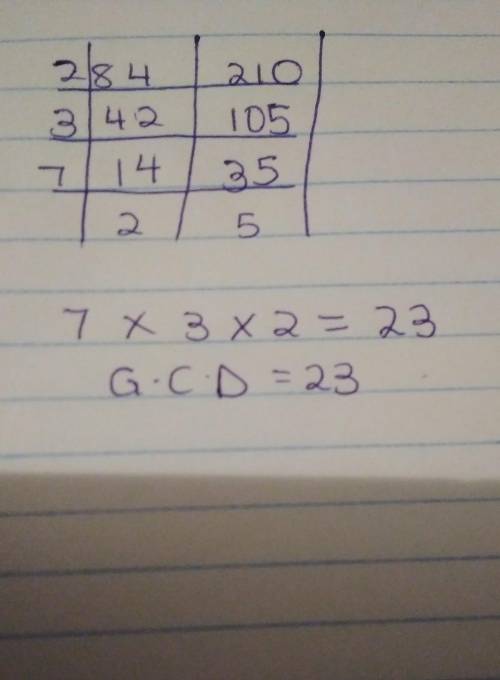 2 84 210
3 42 105
7 14 35
2 5
7 × 3 × 2 = 23
G.C.D = 23